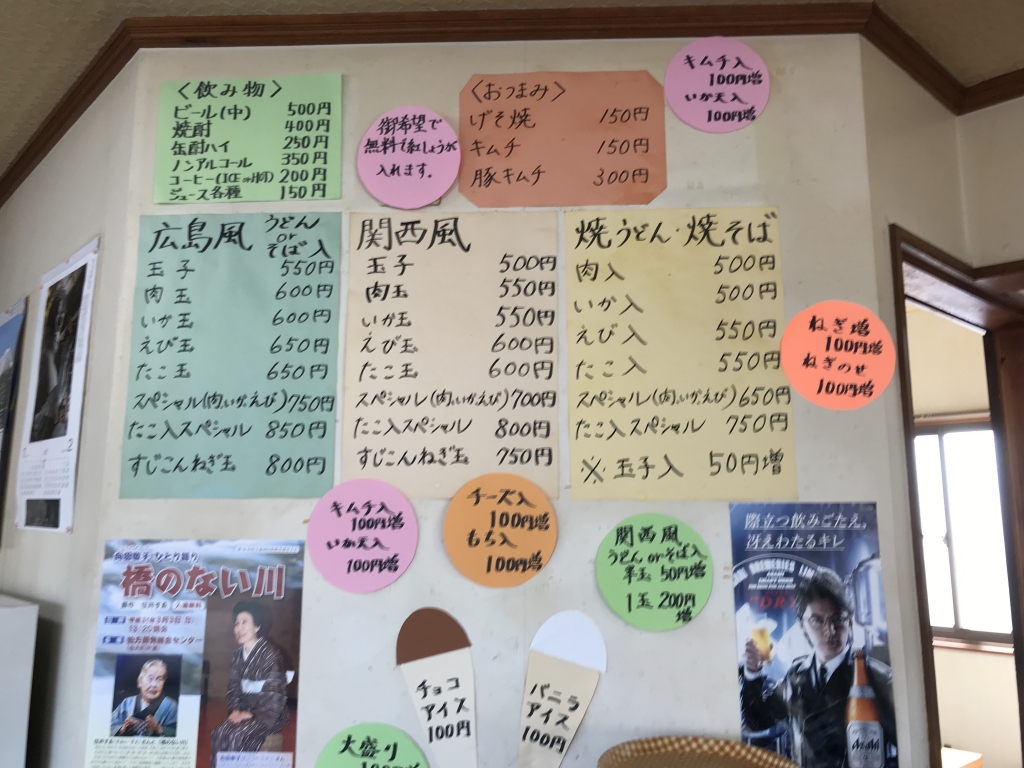 <飲み物>
ビール(中) 500円
焼酎 400円
缶酎ハイ 250円
ノンアルコール 350円
コーヒー(ICE or HOT) 200円
ジュース各種 150円
御希望で
無料で紅しょうが
入れます。
<おつまみ>
げそ焼 150円
キムチ 150円
豚キムチ 300円
キムチ入
100円増
いか天入
100円増
広島風 うどん or そば入
玉子 550円
肉玉 600円
いか玉 600円
えび玉 650円
たこ玉 650円
スペシャル(肉,いか,えび) 750円
たこ入スペシャル 850円
すじこんねぎ玉 800円
関西風
玉子 500円
肉玉 550円
いか玉 550円
えび玉 600円
たこ玉 600円
スペシャル(肉,いか,えび) 700円
たこ入スペシャル 800円
すじこんねぎ玉 750円
焼うどん・焼そば
肉入 500円
いか入 500円
えび入 550円
たこ入 550円
スペシャル(肉,いか,えび) 650円
たこ入スペシャル 750円
※玉子入 50円増
ねぎ増
100円増
ねぎのせ
100円増
キムチ入
100円増
いか天入
100円増
チーズ入
100円増
もち入
100円増
関西風
うどん or そば入
半玉 50円増
1玉 200円
増
チョコ
アイス
100円
バニラ
アイス
100円
大盛り
橋のない川
際立つ飲みごたえ、
冴えわたるキレ
Asahi
2